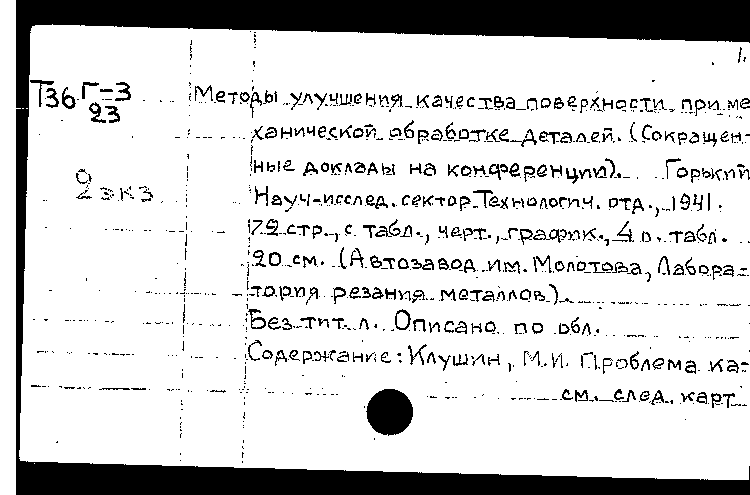 1.
Т36 Г-3
23
Методы улучшения качества поверхности при ме
ханической обработке деталей. (Сокращен-
ные доклады на конференции). Горький
2 экз
Науч-исслед. сектор Технологич. отд., 1941.
72 стр., с табл., черт., график., 4 л. табл.
20 см. (Автозавод им. Молотова, Лабора-
тория резания металлов).
Без тит. л. Описано по обл.
Содержание: Клушин, М.И. Проблема ка-
см. след. карт